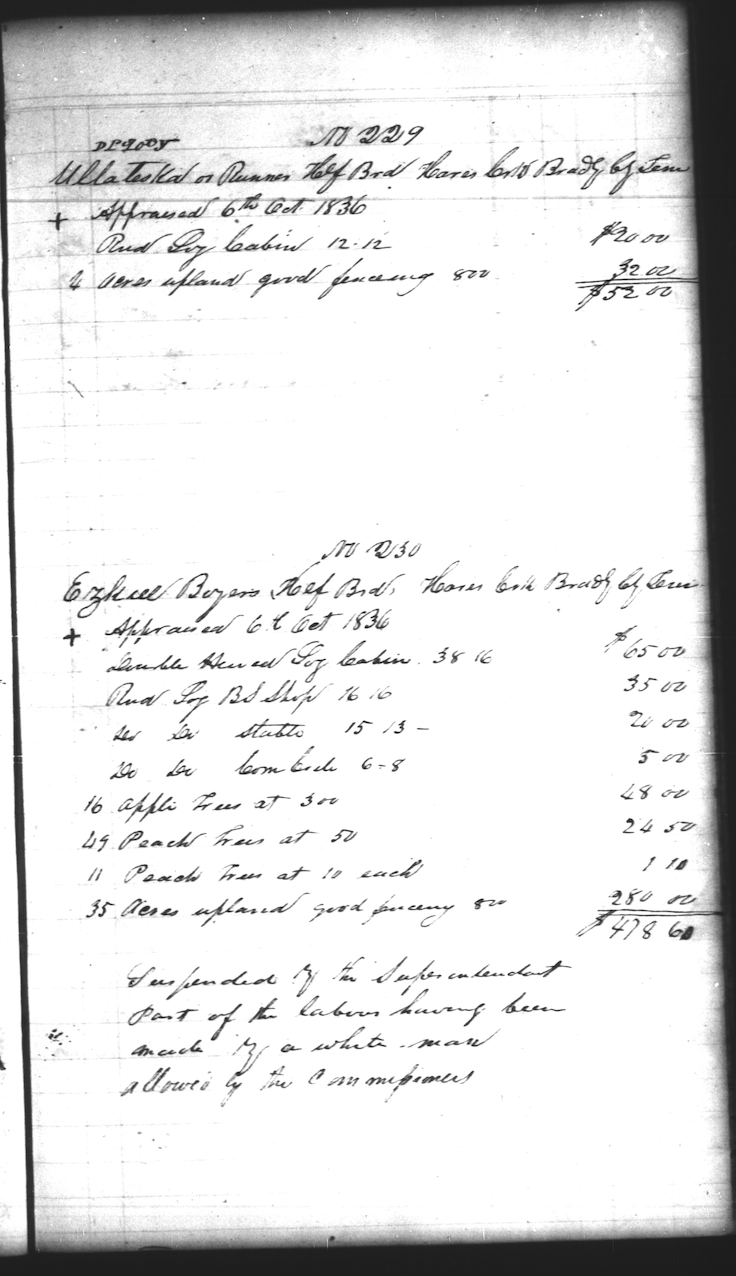 No 229
Ullateskd or Runner Hlf Brd Hares Crk Bradly Cy Tenn
+ Appraised 6th Oct 1836
Rnd Log Cabin 12-12 $20 00
4 acres upland good fenceing 800 32 00
$52 00
No 230
Ezkiel Boyers Helf Brd, Hares Crk Bradly Cy Tenn
+ Appraised 6th Oct 1836
Double Hewed Log Cabin 38 16 $65 00
Rnd Log BS Shop 16 16 35 00
Do Do Stable 15 13 - 20 00
Do Do Corn Crib 6-8 5 00
16 Apple Trees at 300 48 00
49 Peach Trees at 50 24 50
11 Peach Trees at 10 each 1 10
35 Acres upland good fenceing 800 280 00
$478 60
Suspended by the Superintendant
Part of the labour having been
made by a white man
allowed by the Commissioners